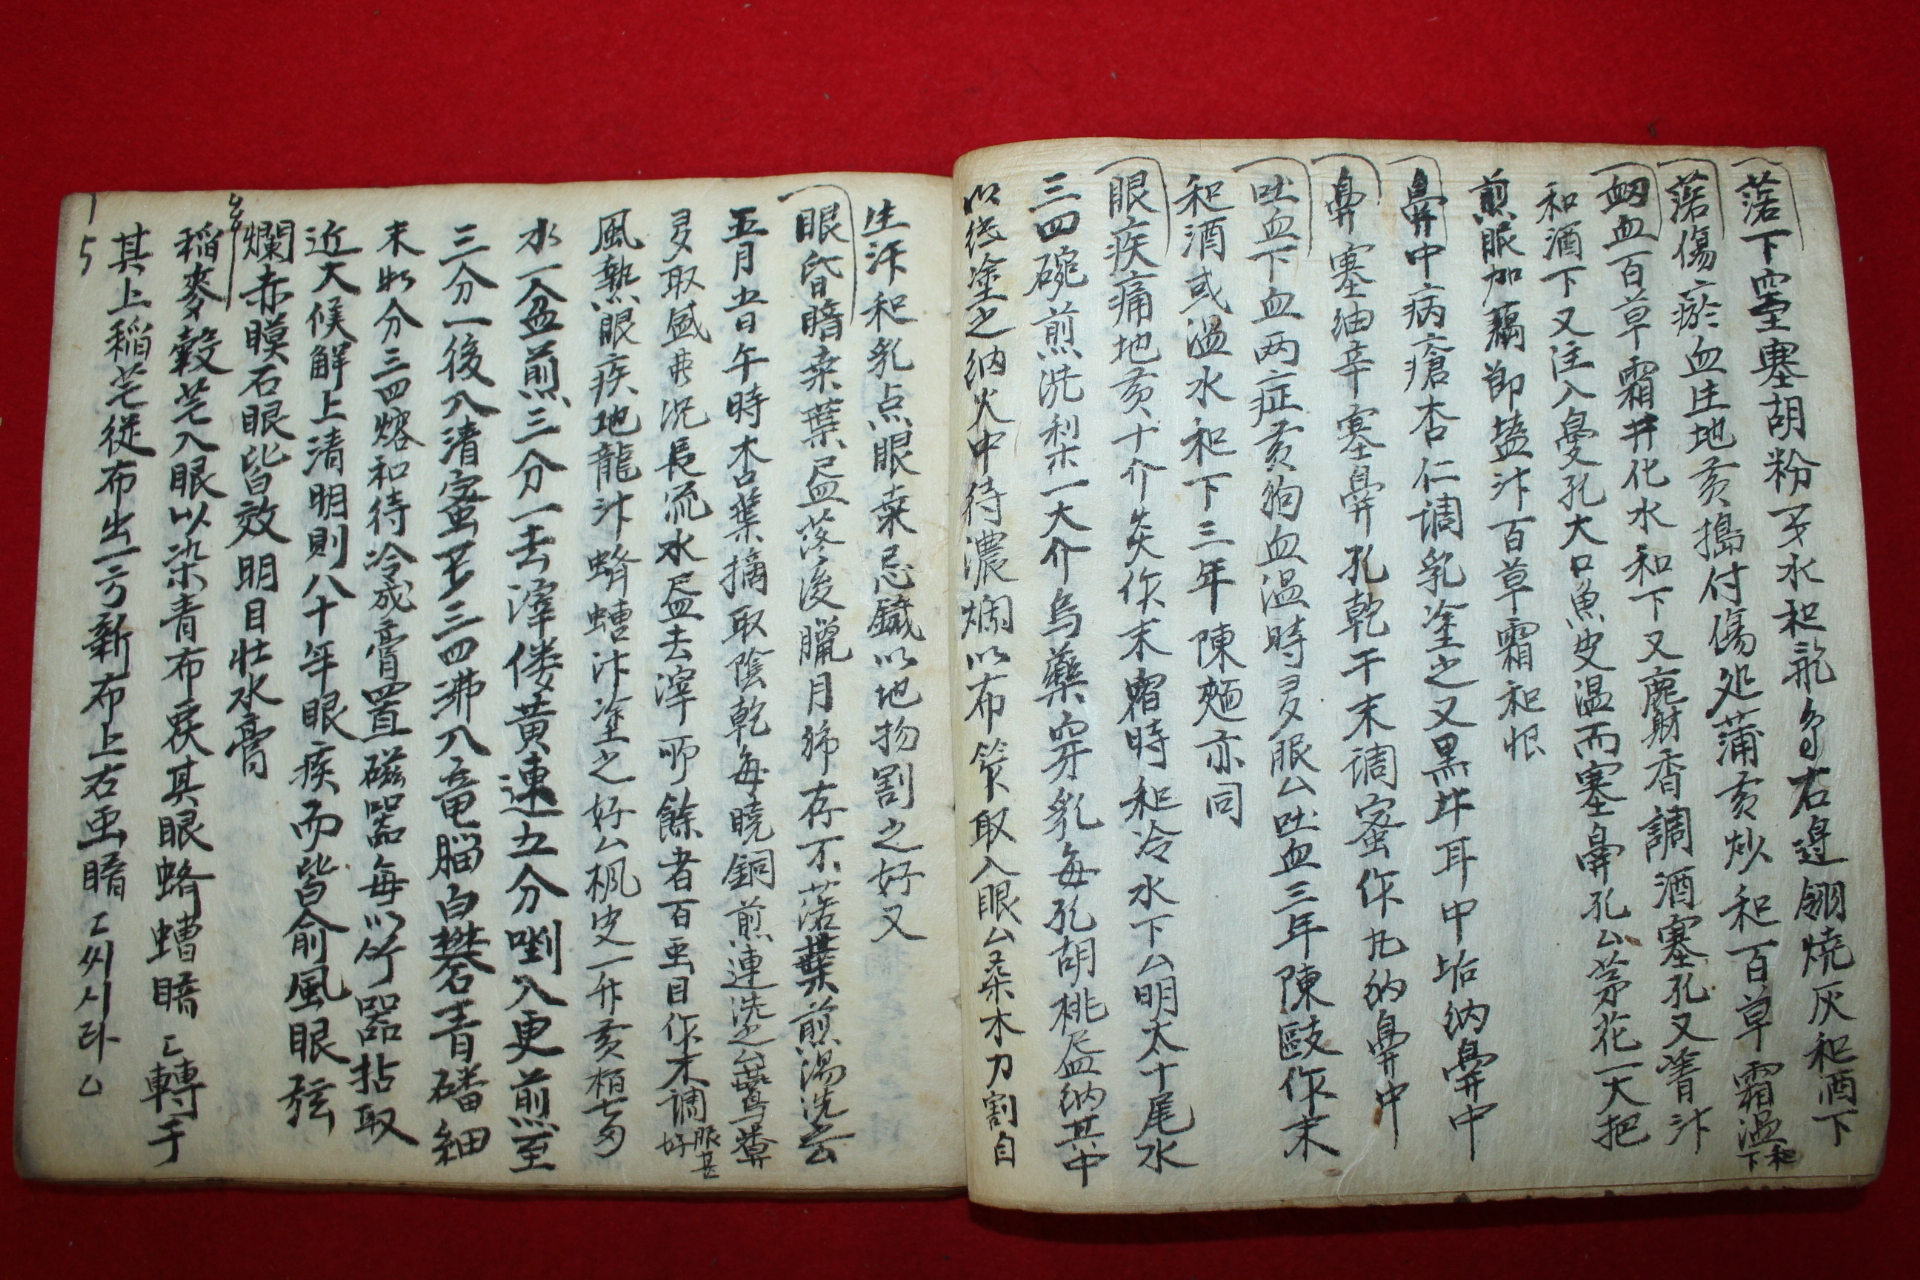 落下窒塞胡粉 水和 右邊翎燒灰和酒下
落傷瘀血生地黃搗付傷処蒲黃炒和百草霜温和下
衂血百草霜井化水和下又麝香調酒塞孔又 汁
和酒下又注入鼻孔大口魚皮温而塞鼻孔厶茅花一大把
煎服加藕節 汁百草霜和
鼻中病瘡杏仁調乳塗之又黑牛耳中垢納鼻中
鼻塞細辛塞鼻孔乾干末調蜜作丸納鼻中
吐血下血两症黃狗血温時多服厶吐血三年陳 作末
和酒或温水和下三年陳麵亦同
眼疾痛地黃十介炙作末霜時和冷水下厶明太十尾水
三四碗煎洗梨 一大介烏藥 牙乳每孔胡桃 納其中
以 塗之納火中待濃爛以布 取入眼厶桑木刀割自
生汗和乳点眼桒忌鐵以地物割之好又
眼昏暗桒葉盡落後臘月 存不落葉煎湯洗去
五月五日午時 葉摘取陰乾每曉銅煎連洗之 鸎一 
多取盛 沉長流水盡去滓 餘者百 目作末調服甚好
風熱眼疾地龍汁蠐螬汁塗之好厶楓皮一 黃栢七
水一盆煎三分一去滓後黃連五分剉入更煎至
三分一後入清蜜 三四沸入竜腦白礬青磻細
末 分三四熔和待冷成膏置磁器每以竹器拈取
近大候解上清明則八十年眼疾而皆俞風眼弦
爛赤瞙石眼皆效明目壯水膏
稲麥穀芒入眼以染青布 其眼蠐螬瞎〻轉于
其上稲芒從布出一方新布上右 瞎